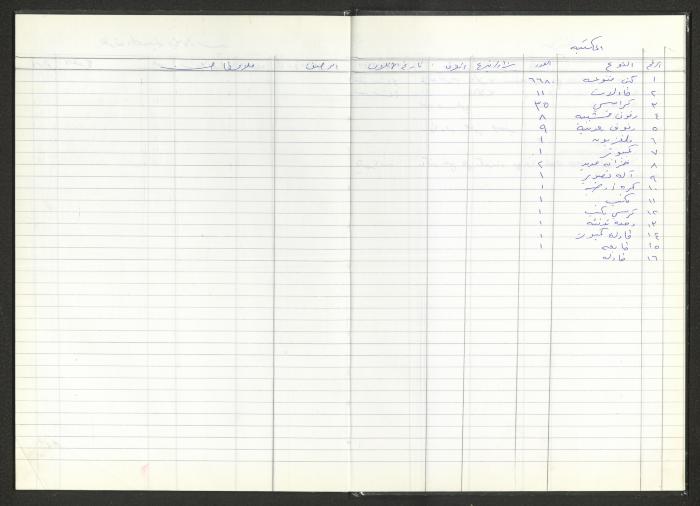 المكتبة
الرقم النوع العدد شراء/تبرع تاريخ الرصيد ملاحظات
١ كتب متنوعه ٦٦٨٠
٢ طاولات ١١
٣ كراسي ٣٥
٤ رفوف خشبيه ٨
٥ رفوف حديدية ٩
٦ تلفزيون ١
٧ كمبيوتر ١
٨ خزانه حديد ٢
٩ آلة تصوير ١
١٠ كره ارضيه ١
١١ مكتب ١
١٢ كرسي مكتب ١
١٣ وحدة ١
١٤ طاولة كمبيوتر ١
١٥ طابعه ١
١٦ طاوله